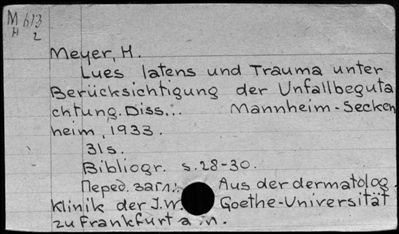 M 613
H 2
Meyer, H.
Lues latens und Trauma unter
Berücksichtigung der Unfallbeguta
chtung. Diss... Mannheim-Secken
heim, 1933.
31s.
Bibliogr. s. 28-30.
Перед. загл.: Aus der dermatolog.
Klinik der J.W. Goethe-Universität
zu Frankfurt a.M.